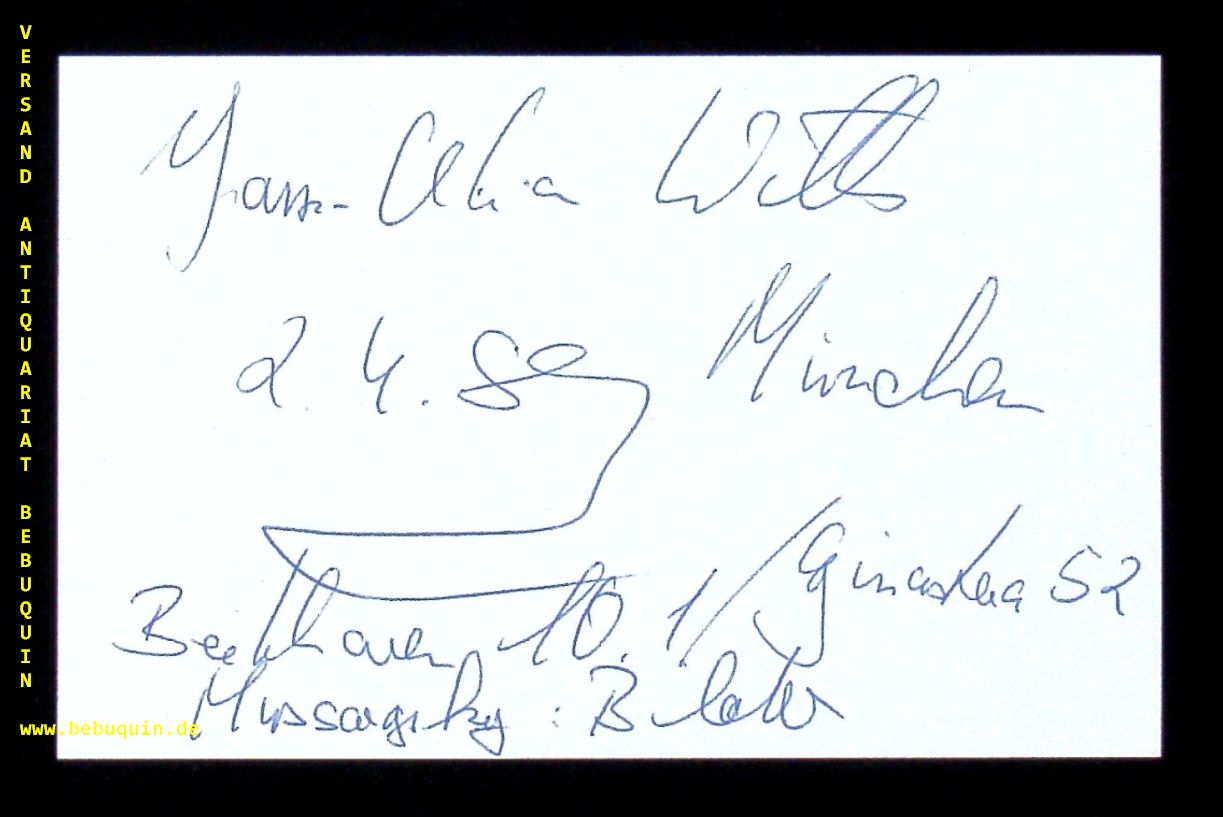 VERSAND ANTIQUARIAT BEBUQUIN
Hans-Christian Wille
2.4.89 München
Beethoven 10.1/Ginastera 52
Mussorgsky: Bilder
www.bebuquin.de